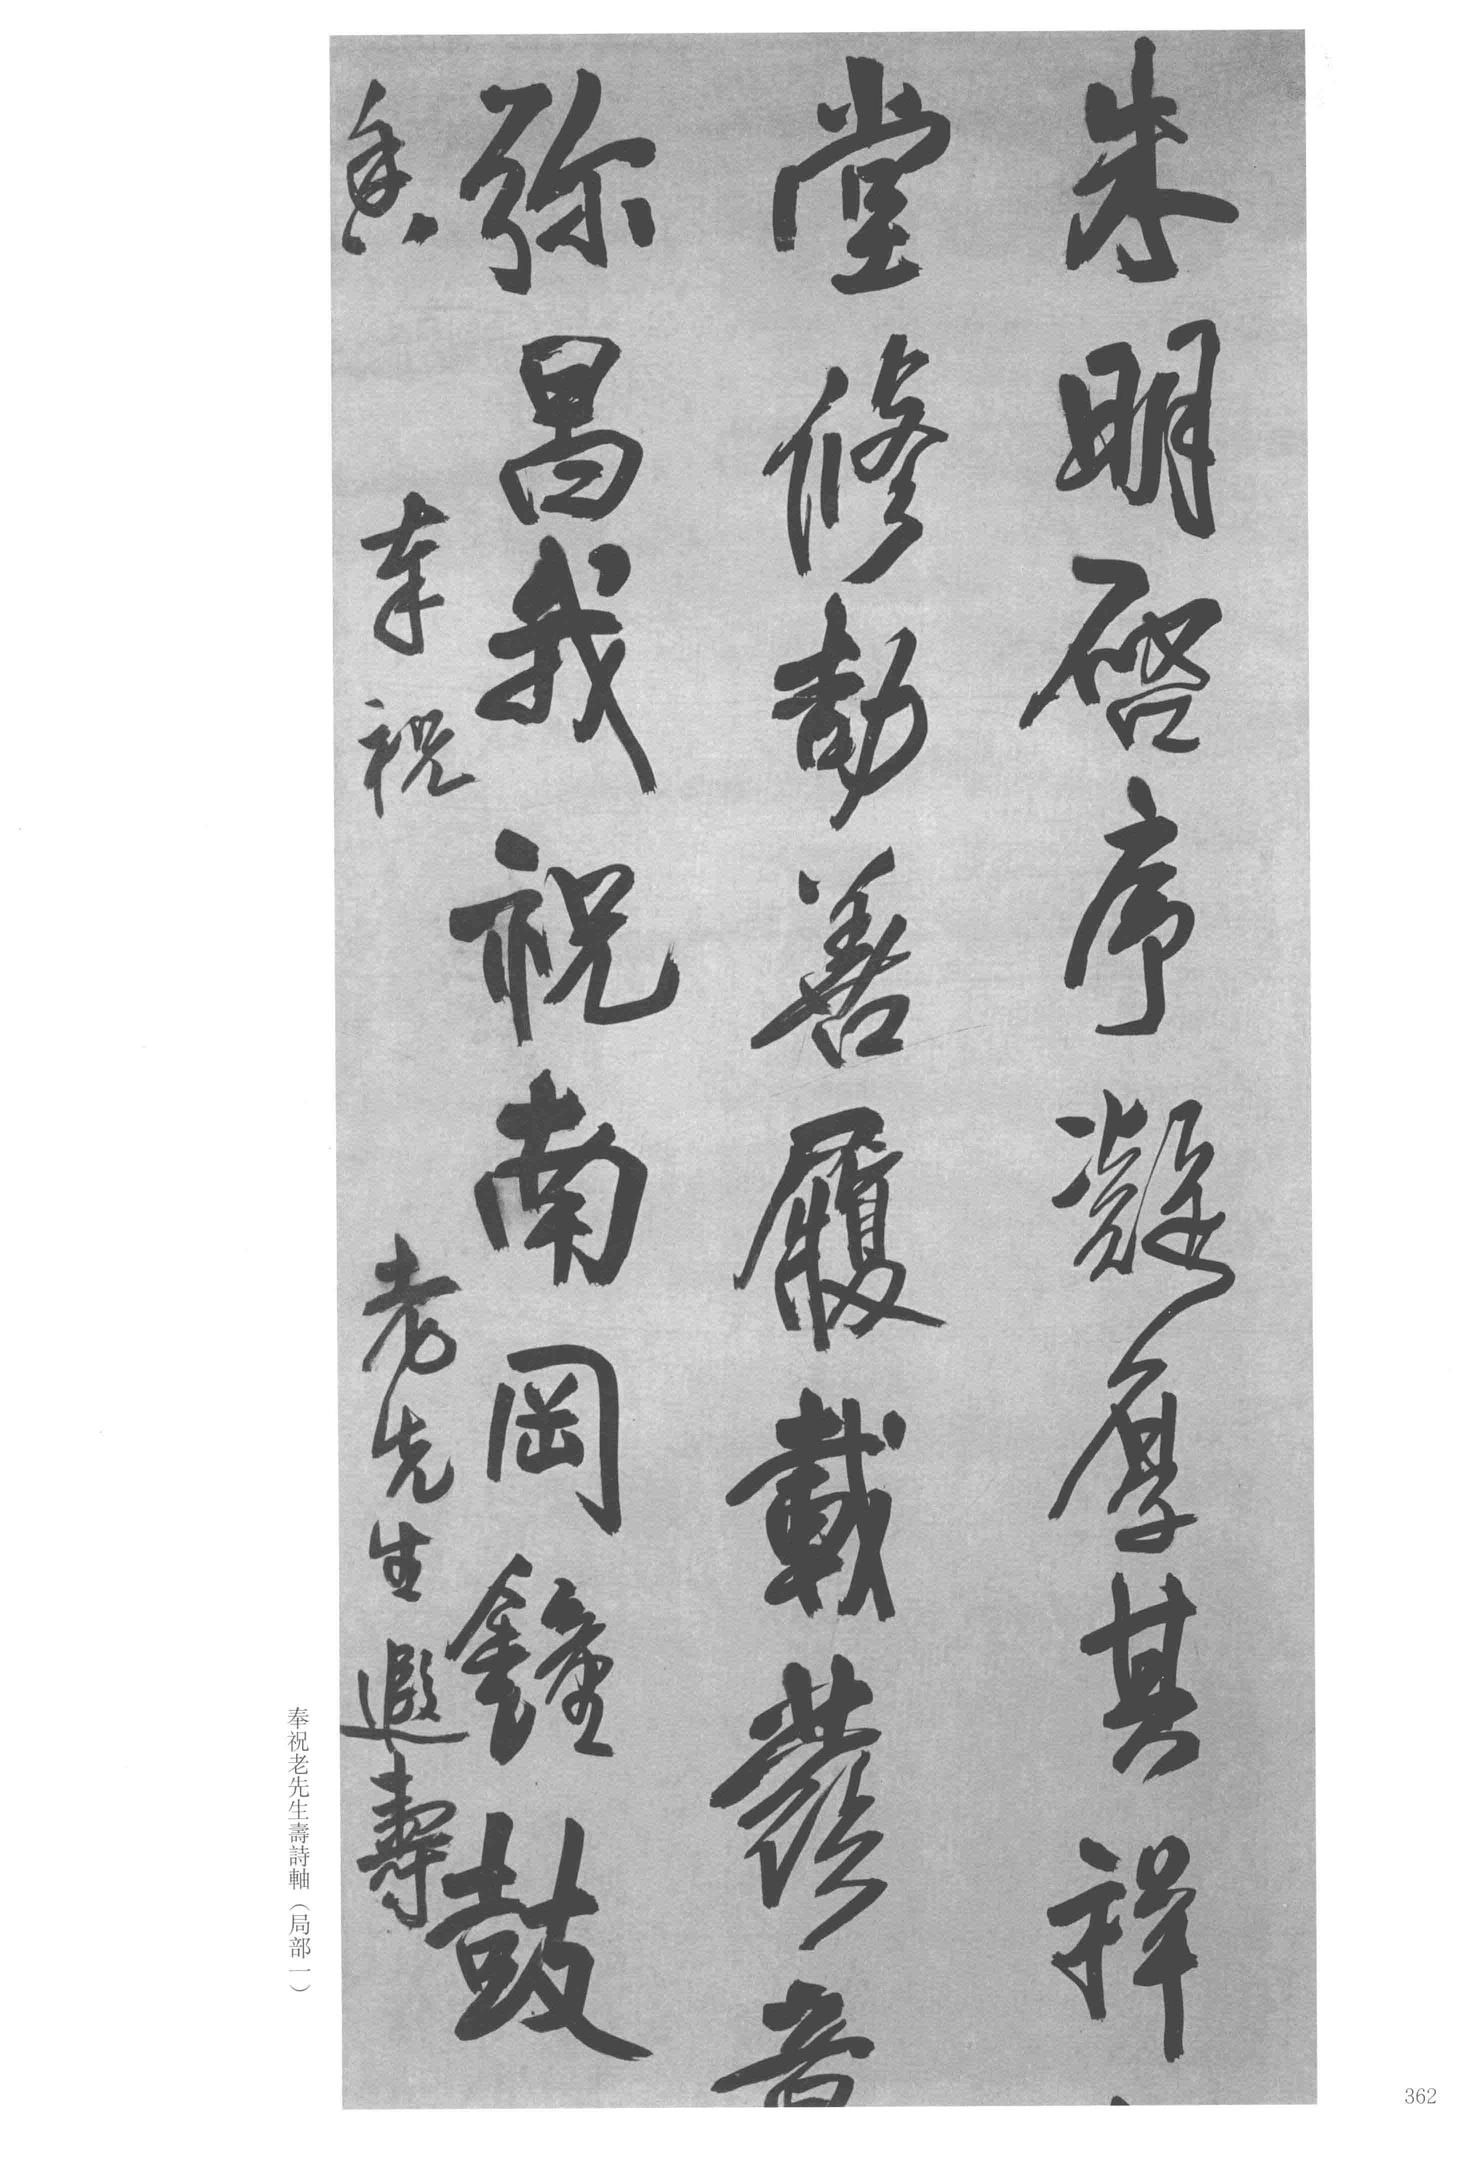 朱明啓序凝厚其祥
堂修善履載發
弥昌我祝南岡鐘鼓
奉祝 老先生遐壽
奉祝老先生壽詩軸（局部一）
362